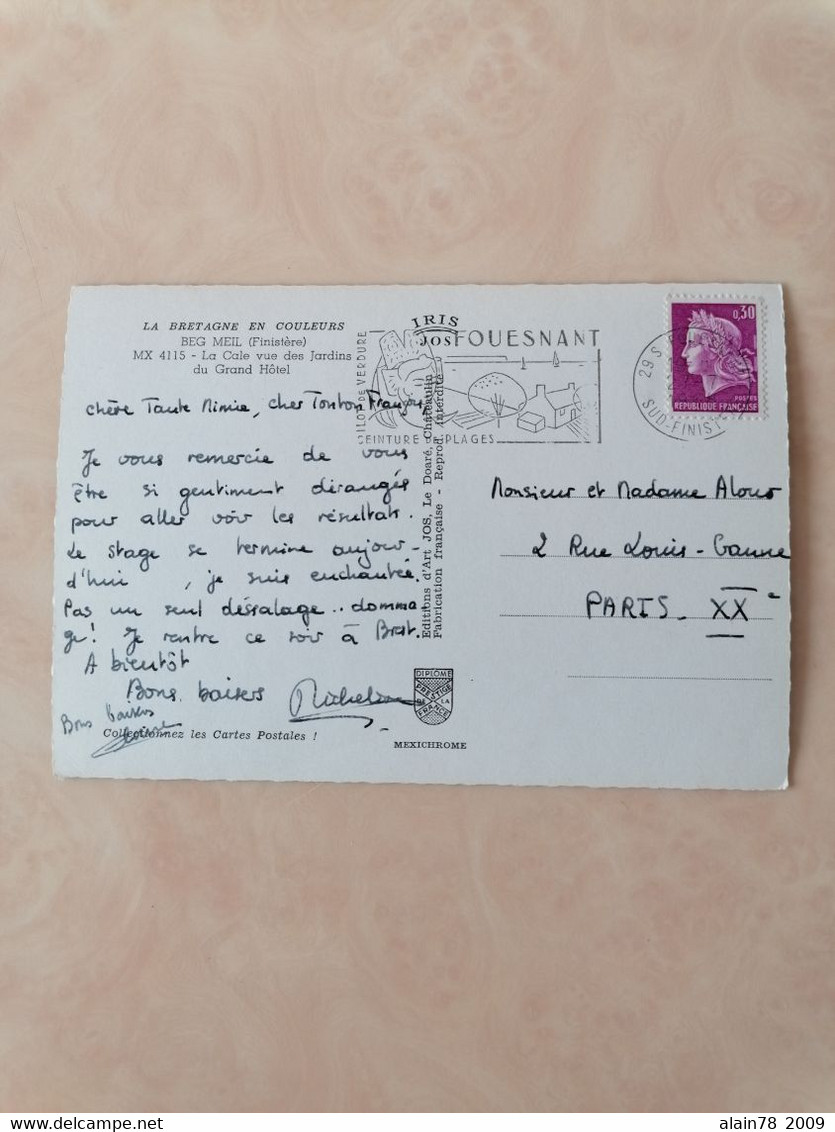 LA BRETAGNE EN COULEURS
BEG MEIL (Finistère)
MX 4115 - La Cale vue des Jardins
du Grand Hôtel
chère Tante Mimie, cher Tonton François,
Je vous remercie de vous
être si gentiment dérangés
pour aller voir les résultats.
Le stage se termine aujour-
d'hui , je suis enchantée.
Pas un seul déssalage.. domma-
ge! Je rentre ce soir à Brest.
A bientôt
Bons baisers
Bons baisers
Collectionnez les Cartes Postales !
IRIS
JOS
Editions d'Art JOS, Le Doaré, Châteaulin
Fabrication française - Reprod. interdite
DIPLOME
PRESTIGE
DE LA
FRANCE
MEXICHROME
FOUESNANT
ILOT DE VERDURE
CEINTURE PLAGES
29 S
SUD-FINIST
0,30
POSTES
REPUBLIQUE FRANÇAISE
Monsieur et Madame
2 Rue Louis-Ganne
PARIS. XXe
alain78 2009